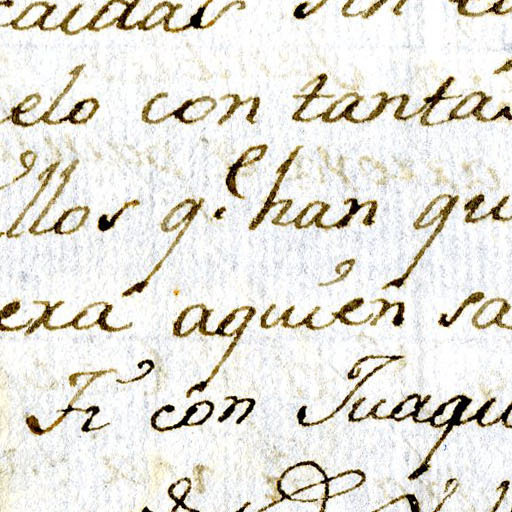 caidas sin
elo con tantas
Ellos q.e han qu
exa aquien sa
Fr con Juaqu